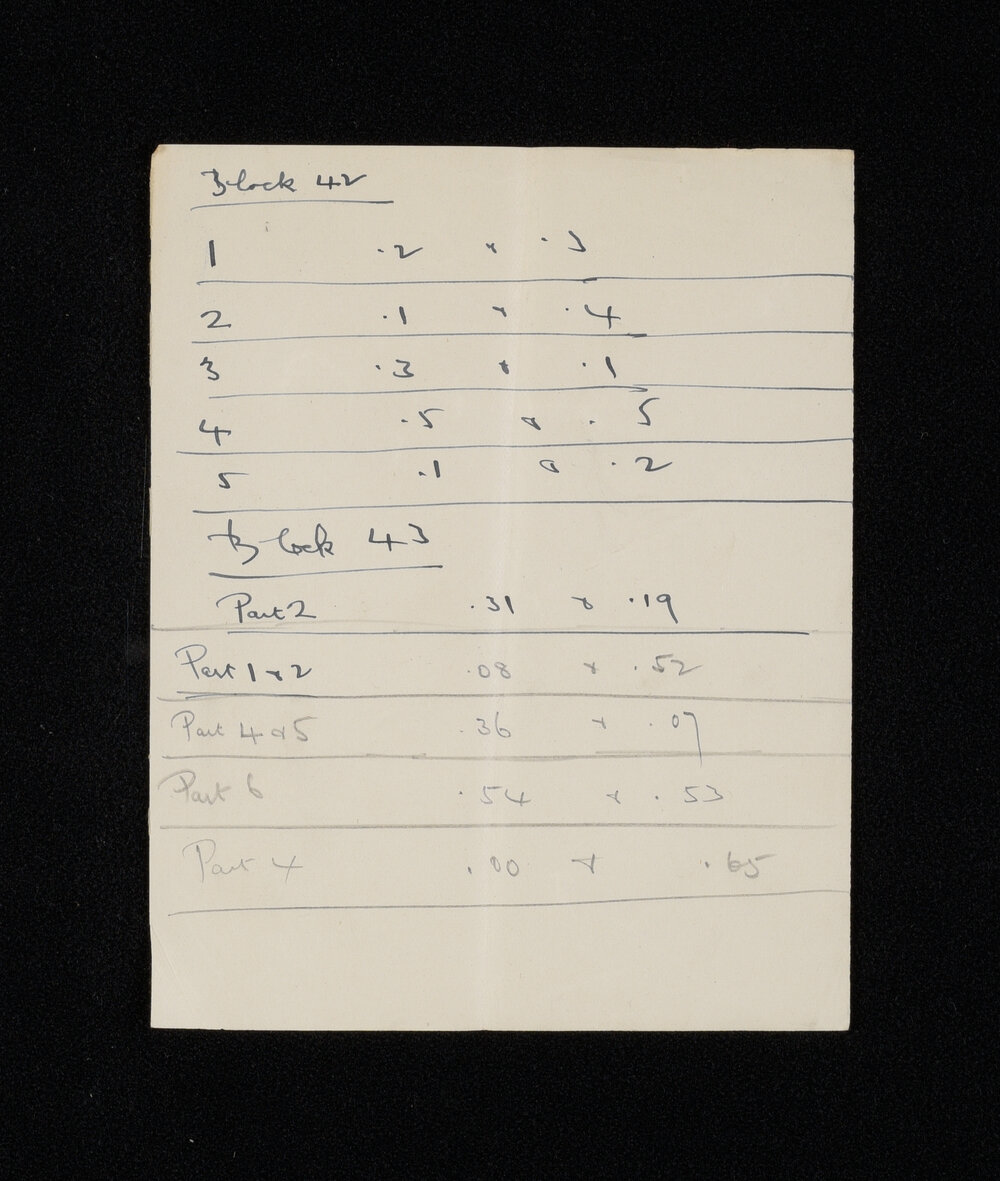 Block 42
1 .2 & .3
2 .1 & .4
3 .3 & .1
4 .5 & .5
5 .1 & .2
Block 43
Part 2 .31 & .19
Part 1 & 2 .08 & .52
Part 4 & 5 .36 & .07
Part 6 .54 & .53
Part 4 .00 & .65